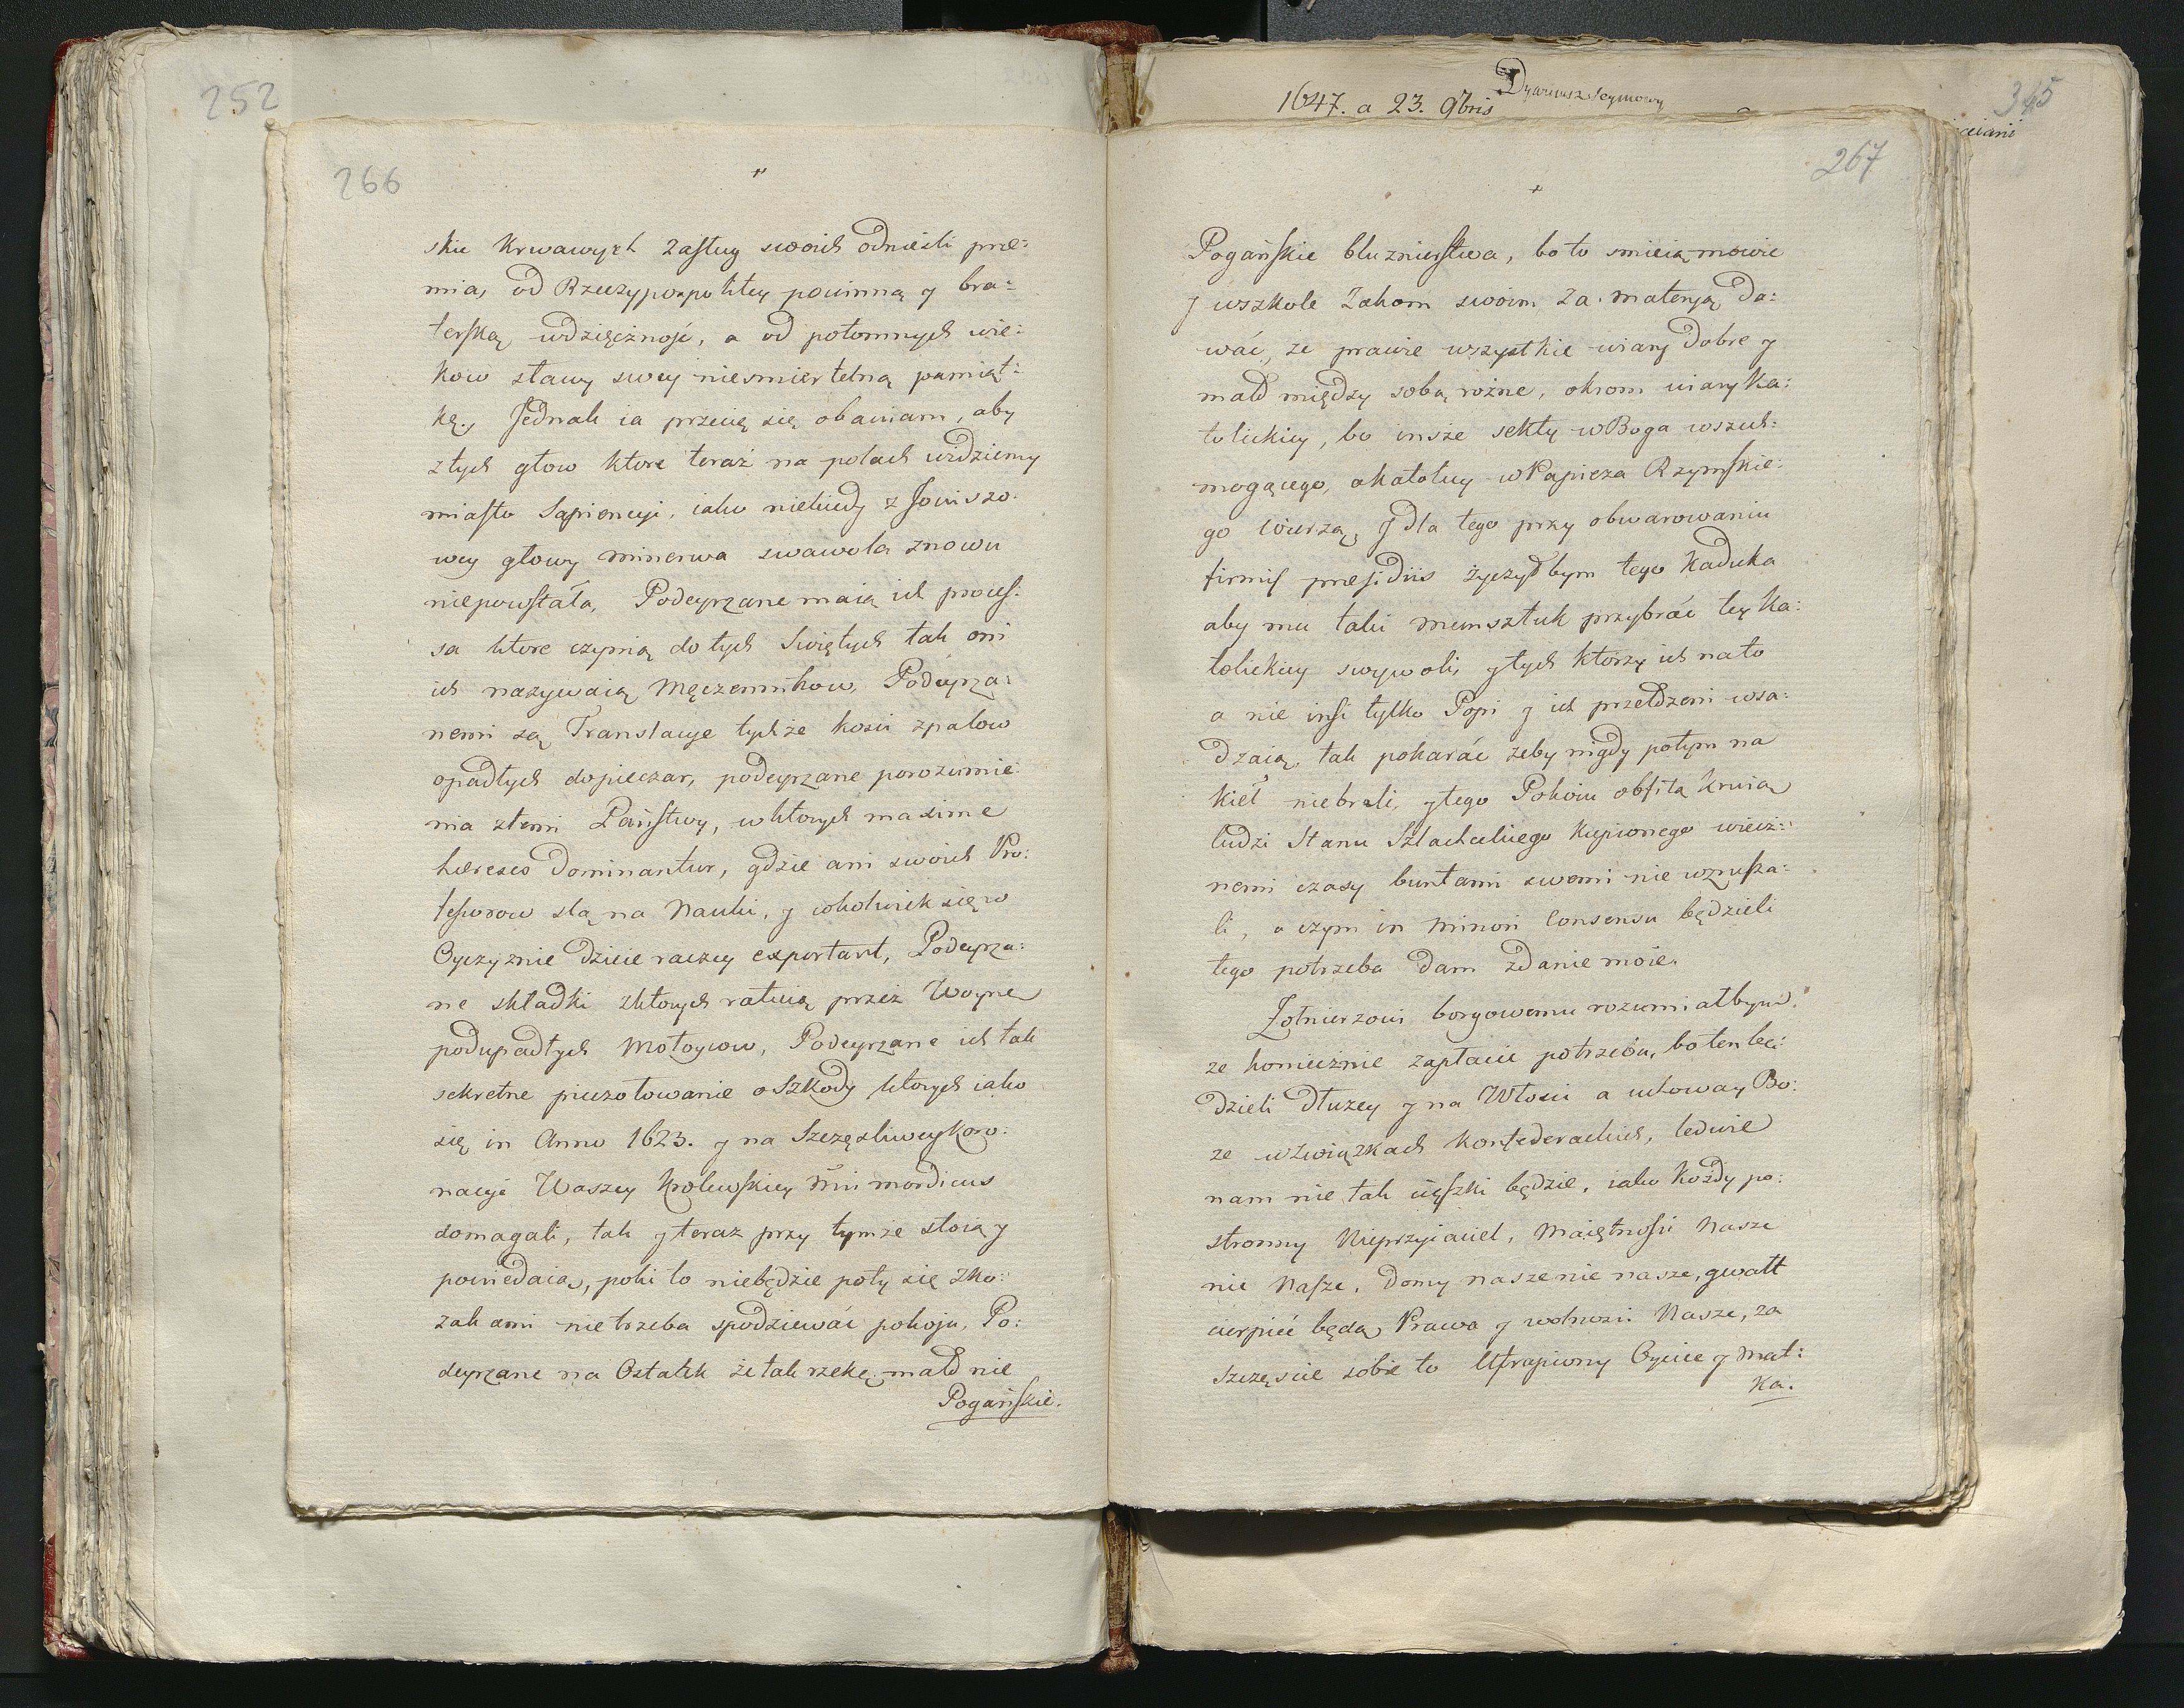 252
266
skie Krwawych Zasług swoich odnieśli præ:
mia, od Rzeczypospolitey powinną y bra:
terską wdzięcżność, a od potomnych wie:
kow sławy swey niesmiertelną pamiąt:
kę., Jednak ia przecię się obawiam, aby
z tych głow ktore teraz na polach widziemy
miasto Sapiencyi, iako niekiedy z Jowiszo:
wey głowy Minerwa swawola znowu
niepowstała, Podeyrzane maią ich proces:
sa ktore czynią do tych Swiętych tak oni
ich nazywaią Męczennikow, Podeyrza:
nemi są Translacye tychże kosci z palow
opadłych do pieczar, podeyrzane porozumie:
nia z temi Państwy, w ktorych maxime
hæreses Dominantur, gdzie ani swoich Pro:
fessorow slą na Nauki, y cokolwiek się w
Oyczyznie dzieie raczey exportant, Podeyrza:
ne składki z ktorych ratuią przez Woynę
podupadłych Mołoycow, Podeyrzane ich tak
sekretne pieczołowanie o Szkody ktorych iako
się in Anno 1623. y na Szczęsliwey Koro:
nacyi Waszey Krolewskiey Mci mordicus
domagali, tak y teraz przy tymże stoią y
powiedaią, poki to niebędzie poty się z Ko:
zakami nie trzeba spodziewać pokoju, Po:
deyrzane na Ostatek że tak rzekę mało nie
Pogańskie.
1647. a 23. 9bris
Dyariusz Seymowy
345
267
Pogańskie bluznierstwa, bo to smieią mowic
y w szkole Zakom swoim za materyą da:
wać, że prawie wszystkie wiary dobre y
mało między sobą rożne, okrom wiary Ka:
tolickiey, bo insze sekty w Boga wszech:
mogącego, a katolicy w Papieża Rzymskie:
go Wierzą, y dla tego przy obwarowaniu
firmis præsidiis życzyłbym tego Kaduka
aby mu taki munsztuk przybrać tey Ka:
tolickiey swywoli, y tych ktorzy ich na to
a nie insi tylko Popi y ich przełożeni wsa:
dzaią, tak pokarać żeby nigdy potym na
kieł niebrali, y tego Pokoiu obfitą krwią
ludzi Stanu Szlacheckiego Kupionego wiecz:
nemi czasy buntami swemi nie wzrusza:
li, o czym in minori Consensu będzieli
tego potrzeba Dam zdanie moie.
Zołnierzowi borgowemu rozumiałbym
że koniecznie zapłacic potrzeba, bo ten bę:
dzieli Dłużey y na Włosci a uchoway Bo:
że w związkach konfederackich, ledwie
nam nie tak cięszki będzie, iako Każdy po:
stronny Nieprzyiaciel, Maiętnosci Nasze
nie Nasze, Domy nasze nie nasze, gwałt
cierpieć będą Prawa y wolnosci Nasze, za
szczęscie sobie to Utrapiony Oyciec y Mat:
ka.